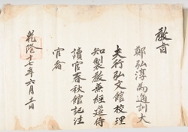 教旨
鄭弘淳爲通訓大
夫行弘文館校理
知製敎兼經筵侍
讀官春秋館記注
官者
乾隆十七年六月十一日